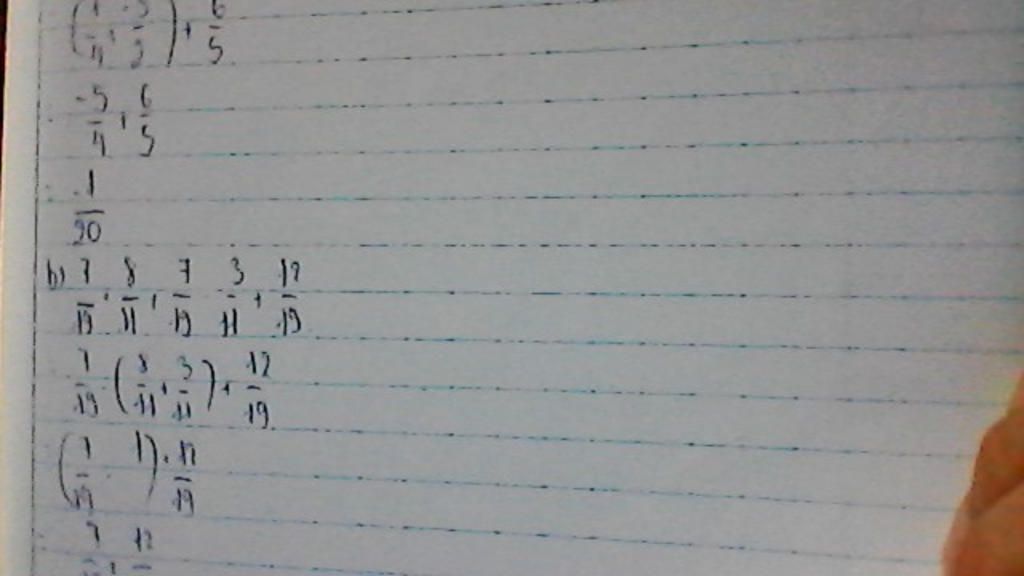 (1/4 + -3/2) + 6/5
-5/4 + 6/5
-1/20
b) 7/19 . 8/11 + 7/19 . 3/11 + 12/19
7/19 . (8/11 + 3/11) + 12/19
(7/19 . 1) + 12/19
7 12